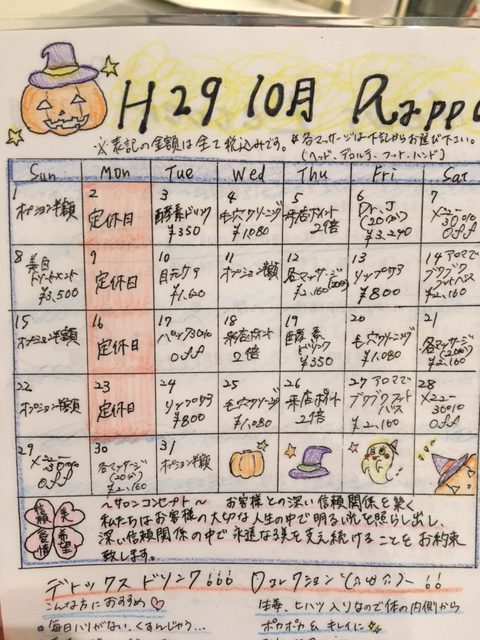 H29 10月 Rappo
※表記の金額は全て税込みです。 *各マッサージは下記からお選び下さい。
(ヘッド、デコルテ、フット、ハンド)
Sun Mon Tue Wed Thu Fri Sat
1 オプション半額
2 定休日
3 酵素ドリンク ¥350
4 毛穴クリーニング ¥1,080
5 来店ポイント 2倍
6 Dr.J (20分) ¥3,240
7 メニュー 30%Off
8 美白トリートメント ¥3,500
9 定休日
10 目元ケア ¥1,620
11 オプション半額
12 各マッサージ ¥2,160(20分)
13 リップケア ¥800
14 アロマでブクブクフットバス ¥2,160
15 オプション半額
16 定休日
17 パック30% Off
18 来店ポイント 2倍
19 酵素ドリンク ¥350
20 毛穴クリーニング ¥1,080
21 各マッサージ(20分) ¥2,160
22 オプション半額
23 定休日
24 リップケア ¥800
25 毛穴クリーニング ¥1,080
26 来店ポイント 2倍
27 アロマでブクブクフットバス ¥2,160
28 メニュー 30%Off
29 メニュー 30%Off
30 各マッサージ (20分) ¥2,160
31 オプション半額
〜サロンコンセプト〜 お客様との深い信頼関係を築く
私たちはお客様の大切な人生の中で明るい光を照らし出し、
深い信頼関係の中で永遠なる美を支え続けることをお約束
致します。
信頼 美
愛情 希望
デトックスドリンク
こんな方におすすめ♡
・毎日ハリがない、くすんじゃう…
生姜、ヒハツ入りなので体の内側から
ポカポカ & キレイに